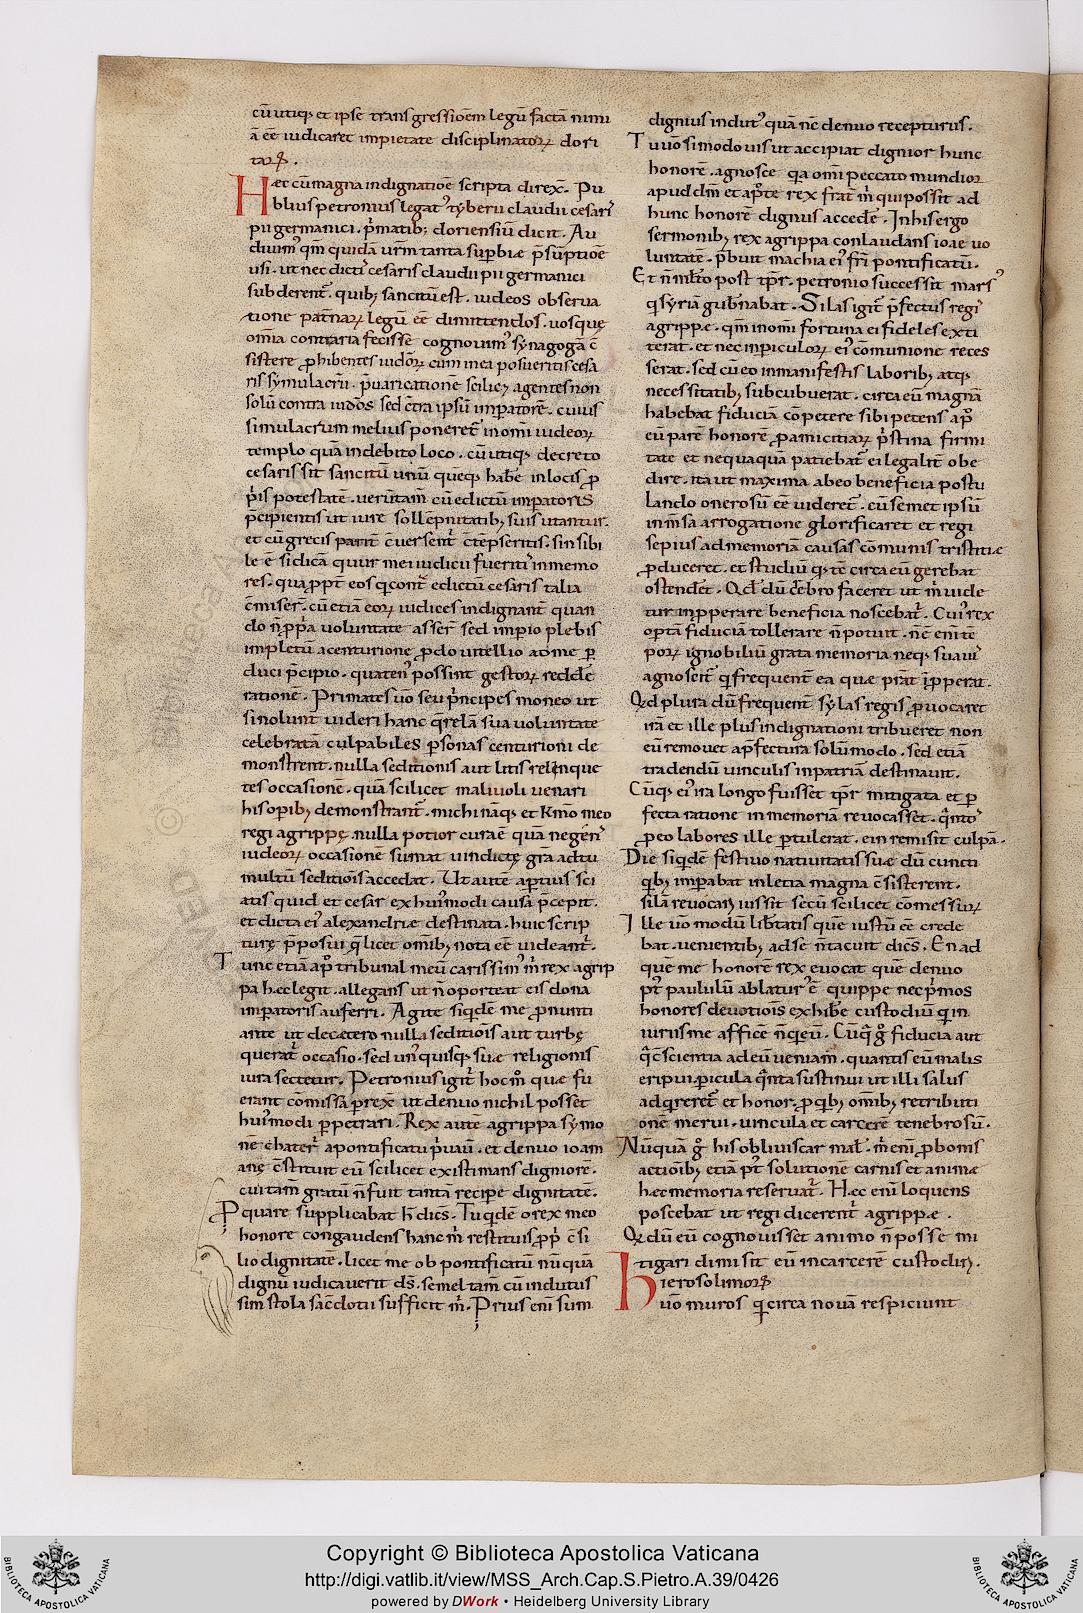 cū utiq; et ipse transgressioēm legū factā nimi
ā eē iudicaret impietate disciplinatoꝝ dori
taꝝ.
Hæc cū magna indignatiōe scripta direx̄. Pu
blius petronius legatꝰ tyberii claudii cesarꝭ
pii germanici. p̄matib; doriensiū dicit. Au
diuimꝰ qm̄ quidā ur̄m tanta sup̄biæ p̄sūptiōe
usi. ut nec dictꝭ cesaris claudii pii germanici
subderent̄. quib; sancitū est. iudeos obserua
tione pat̄naꝝ legū eē dimittendos. uos quę
om̄ia contraria fecisse cognouimꝰ synagogā ɔ̄
sistere ꝓhibentes iudōꝝ cum in ea posueritis cesa
ris symulacrū. p̄uaricationē scilicꝫ agentes non
solū contra iudōs sed cōtra ipsū imp̄atorē. cuius
simulacrum melius poneret̄ in om̄i iudeoꝝ
templo quā indebito loco. cū utiq; decreto
cesaris sit sancitū unū quēq; habē in locis ꝓ
p̄is potestatē. uerūtam̄ cū edictū imp̄atoris
p̄cipientis ut iure sollēpnitatib; suis utantur.
et cū grecis
le ē sidicā quur mei iudicii fuerītꝭ inmemo
res. qua ꝓpt̄ eos q̄ cont̄ edictū cesaris talia
ɔ̄miser̄. cū etiā eoꝝ iudices indignant̄ quan
do n̄ ꝓp̄a uoluntate asser̄t sed impio plebis
impletū a centurione ꝓdo uitellio ad me ꝑ
duci p̄cipio. quatenꝰ possint gestoꝝ reddē
ratione. Primates ūo seu p̄ncipes moneo ut
si nolunt uideri hanc q̄relā sua uoluntate
celebratā culpabiles p̄sonas centurioni de
monstrent. nulla seditionis aut litis relinque
tes occasionē. quā scilicet maliuoli uenari
his oꝑib; demonstrant̄. michi nāq; et kmō meo
regi agrippę nulla potior cura ē quā ne
iudeoꝝ occasionē sumat uindictę gr̄a ad tu
multū seditiōis accedat. Ut autē aꝑtius sci
atis quid et cesar ex huꝰmodi causa p̄cepit.
et dicta eiꝰ alexandriæ destinata. huic scrip
turę p̄posui q̄ licet om̄ib; nota eē uideant̄.
Tunc etiā apꝰ tribunal meū carissimꝰ m̄ rex agrip
pa hæc legit. allegans ut n̄ oporteat eis dona
imꝑatoris auferri. Agite siqdē me ꝓnunti
ante ut decetero nulla seditiōis aut turbę
querat̄ occasio. sed unꝰ quisq; suæ religionis
iura sectetur. Petronius igit̄ hoc mō quæ fu
erant cōmissa ꝑrex̄ ut denuo nichil posset
huꝰmodi ꝑpetrari. Rex aute agrippa symo
ne chaterꝭ a pontificatu p̄uauit. et denuo ioam
anę ɔ̄stituit eū scilicet existimans digniorē.
cui tam̄ gratū n̄ fuit tantā reciꝑe dignitatē.
Pquare supplicabat h̄ dic̄s. Tu qdē o rex meo
honore congaudens hanc m̄ restituis ꝓp̄ ɔ̄si
lio dignitatē. licet me ob pontificatū nūquā
dignū iudicauerit ds̄. semel tam̄ cū indutus
sim stola sac̄dotii sufficit m̄. Prius eni sum
dignius indutꝰ quā nc̄ denuo recepturus.
Tu uō si modo uis ut accipiat dignior hunc
honorē. agnosce q̄a om̄i peccato mundior
apud dm̄ et apꝰ te rex frat̄ m̄ qui possit ad
hunc honorē dignus accedē. In his ergo
sermonib; rex agrippa conlaudans ioæ uo
luntatē. p̄buit machia eiꝰ fr̄i pontificatū.
Et n̄ mlto post tp̄r. petronio successit marsꝰ
q̄ syriā gub̄nabat. Silas igit̄ p̄fectus regꝭ
agrippæ. qm̄ in om̄i fortuna ei fideles exti
terat. et nec in ꝑiculoꝝ eiꝰ cōmunione reces
serat. sed cū eo in manifestis laborib; atq;
necessitatib; subcubuerat. circa eū magnā
habebat fiduciā cōpetere sibi petens apꝰ
eū parē honorē ꝓ amicitiaꝝ p̄stina firmi
tate et nequaquā patiebat̄ ei legalit̄ obe
dire. ita ut maxima ab eo beneficia postu
lando onerosū eē uideret̄. cū semet ipsū
in m̄sa arrogatione glorificaret et regi
sepius ad memoriā causas cōmunis tristitiæ
ꝓduceret. et studiū q̄ tē circa eū gerebat
ostendet̄. Qd̄ dū c̄bro faceret ut m̄ uide
tur inproperare beneficia noscebat̄. Cuiꝰ rex
optā fiduciā tollerare n̄ potuit. n̄c eni tē
poꝝ ignobiliū grata memoria neq; suauꝭ
agnoscit̄ q̄ frequent̄ ea quæ p̄rat īpꝑat.
Qd plura dū frequent̄ sylas regis ꝓuocaret
irā et ille plus indignationi tribueret non
eū remouet a p̄fectura solūmodo. sed etiā
tradendū uinculis in patriā destinauit.
Cūq; eiꝰ ira longo fuisset tp̄r mitigata et ꝑ
fecta ratione in memoriā reuocasset. q̄ntoꝭ
ꝓ eo labores ille ꝑtulerat. ei remisit culpā.
Die siqdē festiuo natiuitatis suæ dū cuncti
qb; imꝑabat in leticia magna ɔ̄sisterent.
silā reuocarꝭ iussit secū scilicet cōmessuꝝ
Ille uō modū lib̄tatis quē iustū eē crede
bat. uenientib; ad se n̄ tacuit dic̄s. En ad
quē me honorē rex euocat quē denuo
pꝰ paululū ablaturꝰ ē quippe nec p̄mos
honores deuotiōis exhibē custodiū q̄ in
iurius me afficē n̄ q̄euit. Cūq̄ gꝰ fiducia aut
q̄ ɔ̄scientia ad eū ueniam̄. quantis eū malis
eripui ꝑicula q̄nta sustinui ut illi salus
adqreret̄ et honor. ꝓ qb; om̄ib; retributi
onē merui. uincula et carcerē tenebrosū.
Nūquā gꝰ his obliuiscar mat̄. m̄ eni ꝓ bonis
actiōib; etiā pꝰ solutionē carnis et animæ
hæc memoria reseruat̄. Hæc eni loquens
poscebat ut regi dicerent̄ agrippæ.
Q̄ dū eū cognouisset animo n̄ posse mi
tigari dimisit eū in carcerē custodirꝭ.
Hierosolimoꝝ
uō muros q̄ circa nouā respiciunt
Copyright © Biblioteca Apostolica Vaticana
http://digi.vatlib.it/view/MSS_Arch.Cap.S.Pietro.A.39/0426
powered by DWork • Heidelberg University Library
BIBLIOTECA APOSTOLICA VATICANA
BIBLIOTECA APOSTOLICA VATICANA